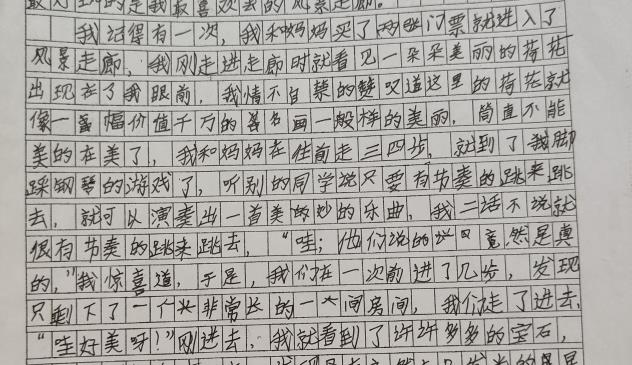 我最喜欢去的风景走廊。
我记得有一次，我和妈妈买了两张门票就进入了
风景走廊，我刚走进走廊时就看见一朵朵美丽的荷花
出现在了我眼前，我情不自禁的赞叹道这里的荷花就
像一幅价值千万的名画一般样的美丽，简直不能
美的在美了，我和妈妈在往前走三四步，就到了我脚
踩钢琴的游戏了，听别的同学说只要有节奏的跳来跳
去，就可以演奏出一首美妙的乐曲，我二话不说就
很有节奏的跳来跳去，“哇；他们说的竟然是真
的，”我惊喜道，于是，我们在一次前进了几步，发现
只剩下了一个非常长的一间房间，我们走了进去，
“哇好美呀！”刚进去，我就看到了许许多多的宝石，